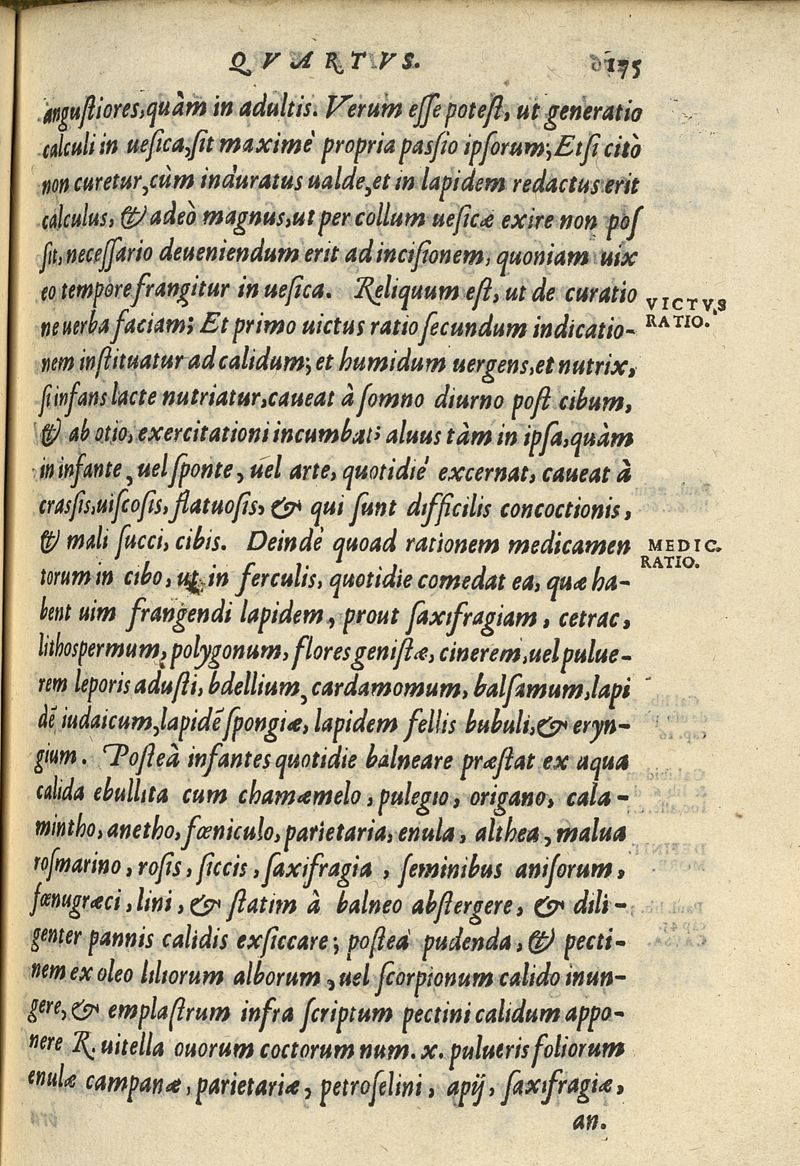 QVARTVS. 175
angustiores, quàm in adultis. Verum esse potest, ut generatio
calculi in uesica, sit maximè propria passio ipsorum; Et si citò
non curetur, cùm induratus ualde, et in lapidem redactus erit
calculus, & adeò magnus, ut per collum uesicæ exire non pos
sit, necessario deueniendum erit ad incisionem, quoniam uix
eo tempore frangitur in uesica. Reliquum est, ut de curatio
ne uerba faciam; Et primo uictus ratio secundum indicatio-
nem instituatur ad calidum; et humidum uergens, et nutrix,
si infans lacte nutriatur, caueat à somno diurno post cibum,
& ab otio, exercitationi incumbat; aluus tàm in ipsa, quàm
in infante, uel sponte, uel arte, quotidiè excernat, caueat à
crassis, uiscosis, flatuosis, & qui sunt difficilis concoctionis,
& mali succi, cibis. Deindè quoad rationem medicamen
torum in cibo, ut in ferculis, quotidie comedat ea, quæ ha-
bent uim frangendi lapidem, prout saxifragiam, cetrac,
lithospermum, polygonum, flores genistæ, cinerem, uel pulue-
rem leporis adusti, bdellium, cardamomum, balsamum, lapi
dē iudaicum, lapidē spongiæ, lapidem fellis bubuli, & eryn-
gium. Posteà infantes quotidie balneare præstat ex aqua
calida ebullita cum chamæmelo, pulegio, origano, cala-
mintho, anetho, fœniculo, parietaria, enula, althea, malua
rosmarino, rosis, siccis, saxifragia, seminibus anisorum,
fœnugræci, lini, & statim à balneo abstergere, & dili-
genter pannis calidis exsiccare; posteà pudenda, & pecti-
nem ex oleo liliorum alborum, uel scorpionum calido inun-
gere, & emplastrum infra scriptum pectini calidum appo-
nere R. uitella ouorum coctorum num. x. pulueris foliorum
enulæ campanæ, parietariæ, petroselini, apij, saxifragiæ,
an.
VICTVS
RATIO.
MEDIC.
RATIO.